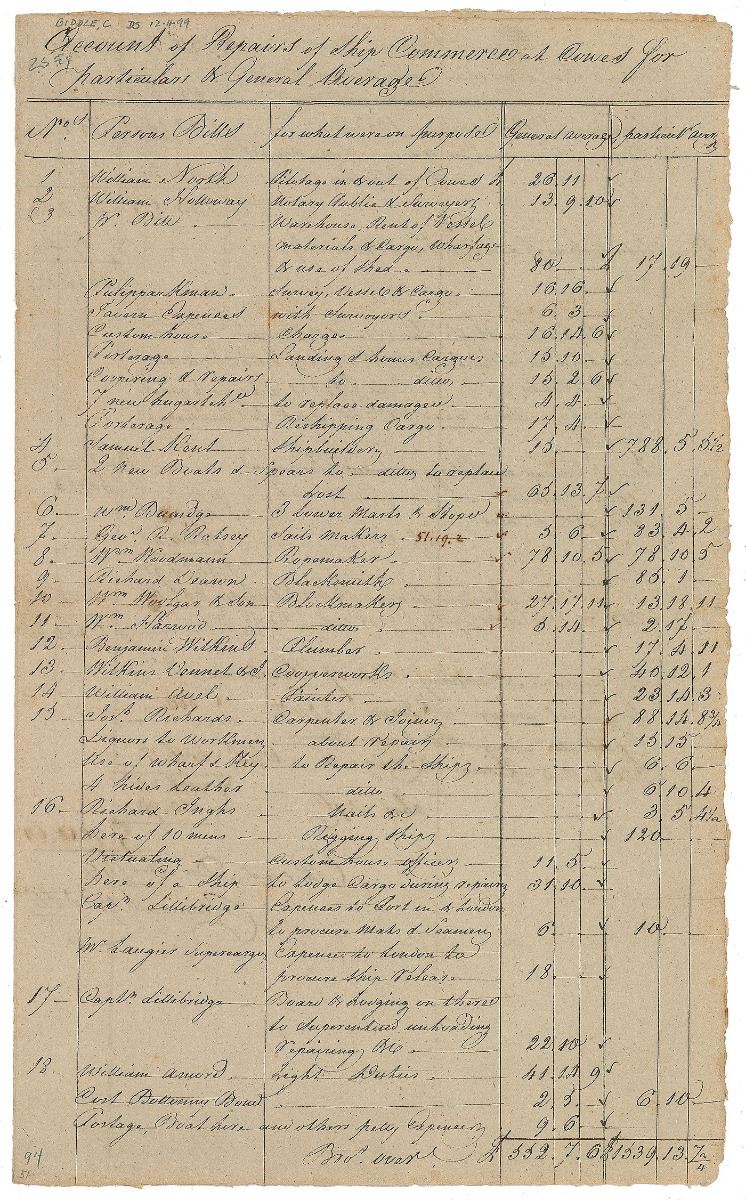 BIDDLE, C. DS 12.4.99
Account of Repairs of Ship Commerce at Cowes for
particulars & General Average
Nos. Persons Bills for what were on purpose General average particulr aver
1 William North Pilotage in & out of Cowes £ 26.11
2 William Holloway Notary Public & Surveyer 13.9.10
3 W. Bill Warehouse, Rent of Vessel
materials & Cargo, Wharfage
& use of Shed 80 — £ 17.19 —
Survey, Vessel & Cargo 16.16 —
Tavern Expences with Surveyors 6.3 —
Custom house Charges 16.14.6
Porterage Landing & house Cargoes 15.10 —
Coopering & repairs to ditto 15.2.6
7 new to replace damaged 4.4 —
Porterage Reshipping Cargo 17.4 —
4 Samuel Kent Shipbuilders 15 — 788.5.5½
5 2 New Boats & Spears to ditto to replace
Lost 65.13.7
6 Wm. 3 Lower Masts & Slope 131.5 —
7 Geo. R. Ratsey Sails Makers 51.19.2 5.6 — 83.4.2
8 Wm Woodmann Ropemaker 78.10.5 78.10.5
9 Richard Blacksmith 85.1 —
10 Wm Woolgar & Son Blockmakers 27.17.11 13.18.11
11 Wm Harwood ditto 5.14 — 2.17 —
12 Benjamin Wilkins Plumber 17.4.11
13 Wilkins & Cooperworks 40.12.1
14 William Avel Painter 23.14.3
15 Jos. Richards Carpenter & Joiner 88.14.8¾
Liquors to Workmen about repair 15.15 —
Use of Wharf & Key to Repair the Ship 6.6 —
4 Hides Leather ditto 6.10.4
16 Richard Inghs Nails &c 3.5.4½
here of 10 mens Rigging Ship 120 —
Victualing Custom house officers 11.5 —
here of a Ship to lodge Cargo during repairing 31.10 —
Capn. Lillibridge Expences to Port in & London
to procure Mats & Seamen 6 — 10 —
W. Laugier Supercargo Expences to London to
procure Ship Release 18 —
17 Captn. Lillibridge Board & Lodging on there
to Superentend unloading
repairing &c 22.10 —
18 William Light Duties 41.14.9
Cost Bottomry Bond 2.5 — 6.10 —
Postage, Boat here and others petty Expences 9.6 —
Bro. over £ 552.7.6 £1539.13.7¾
94